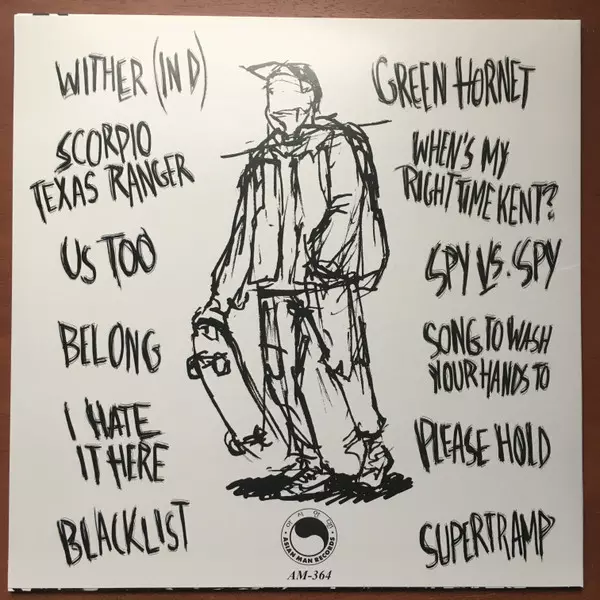 WITHER (IN D)
SCORPIO
TEXAS RANGER
US TOO
BELONG
I HATE
IT HERE
BLACKLIST
GREEN HORNET
WHEN'S MY
RIGHT TIME KENT?
SPY VS. SPY
SONG TO WASH
YOUR HANDS TO
PLEASE HOLD
SUPERTRAMP
ASIAN MAN RECORDS
AM-364